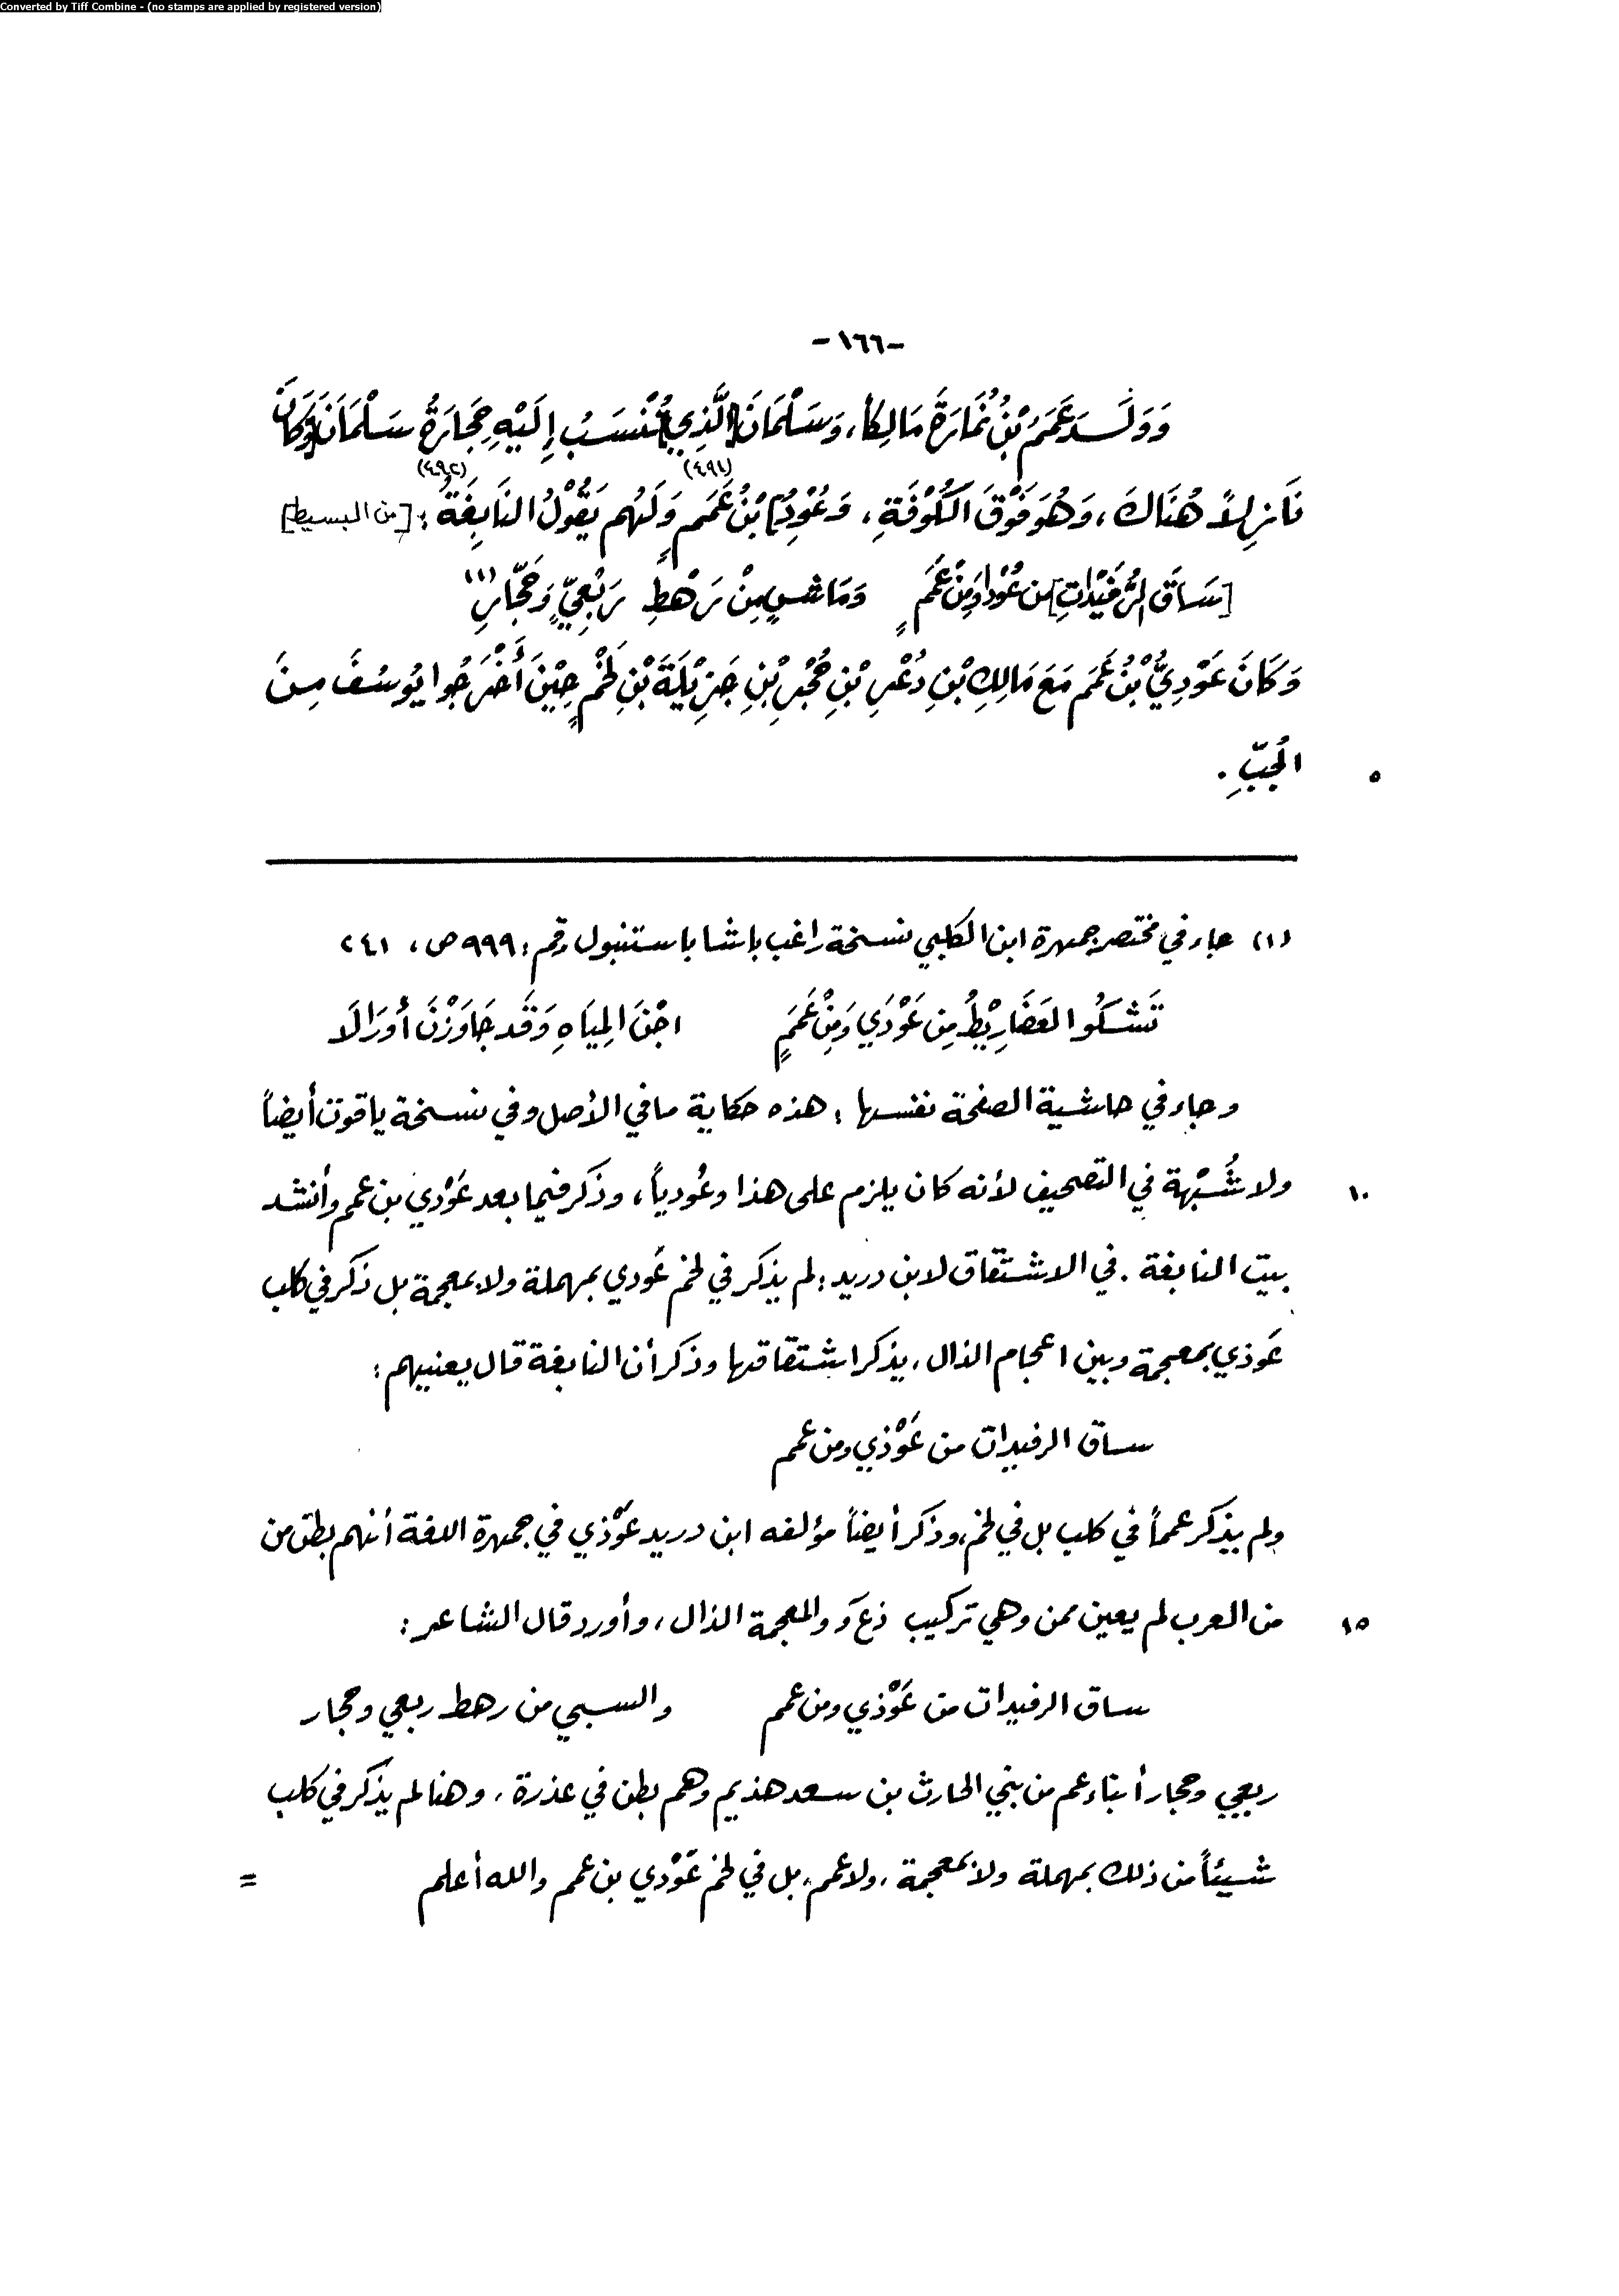 Converted by Tiff Combine - (no stamps are applied by registered version)
-١٦٦-
وَوَلَــدَ عَمَمُ بْنُ نُمَارَةَ مَالِكاً، وَسَلْمَانَ الَّذِي تُنْسَبُ إِلَيْهِ حِجَارَةُ سَلْمَانَ وَكَانَ
نَازِلاً هُنَاكَ، وَهُوَ فَوْقَ الكُوْفَةِ، وَعُوْدَ بْنُ عَمَمٍ (٤٩١) وَلَهُم يَقُوْلُ النَابِغَةُ (٤٩٢) : [من البسيط]
[سَاقَ الرُّفَيْدَاتِ] من عُوْدا وَمِنْ عَمَمٍ وَمَاشٍ مِنْ رَهْطِ رَبْعِيٍّ وَحَجَّارِ (١)
وَكَانَ عَوْدِيُّ بْنُ عَمَمٍ مَعَ مَالِكِ بْنِ دُعْرِ بْنِ حُجْرِ بْنِ جَزِيْلَةَ بْنِ لَخْمٍ حِيْنَ أَخْرَجُوا يُوسُفَ مِنَ
٥ الجُبِّ .
(١) جاء في مختصر جمهرة ابن الكلبي نسخة راغب باشا باستنبول رقم : ٩٩٩ ص، ٢٤١
تَشكُو العَضَارِيْطُ مِن عَوْدَي وَمِنْ عَمَمٍ اجْنَ المِيَاهِ وَقَد جَاوَزْنَ أُورَالَا
وجاء في حاشية الصفحة نفسها : هذه حكاية ما في الأصل وفي نسخة ياقوت أيضاً
١٠ ولا شُبْهة في التصحيف لأنه كان يلزم على هذا وعُودياً، وذكر فيما بعد عَوْدي بن عمم وأنشد
بيت النابغة . في الاشتقاق لابن دريد : لم يذكر في لخم عَودي بمهملة ولا بمعجمة بل ذكر في كلب
عَوذي بمعجمة وبين اعجام الذال، يذكر اشتقاقها وذكر أن النابغة قال يعنيهم :
ساق الرفيدات من عَوْذي ومن عمم
ولم يذكر عمماً في كلب بل في لخم، وذكر أيضاً مؤلفه ابن دريد عَوْذي في جمهرة اللغة أنهم بطن من
١٥ من العرب لم يعين ممن وهي تركيب ذعَ وَ والمعجمة الذال، وأورد قال الشاعر :
ساق الرفيدات من عَوْذي ومن عمم والسبي من رهط ربعي وحجار
ربعي وحجار أبناء عم من بني الحارث بن سعد هذيم وهم بطن في عذرة، وهنا لم يذكر في كلب
شيئاً من ذلك بمهملة ولا بمعجمة، ولا عمم، بل في لخم عَوْدي بن عمم والله أعلم =